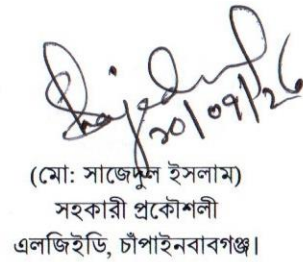 ২০/০৭/২৬
(মো: সাজেদুল ইসলাম)
সহকারী প্রকৌশলী
এলজিইডি, চাঁপাইনবাবগঞ্জ।